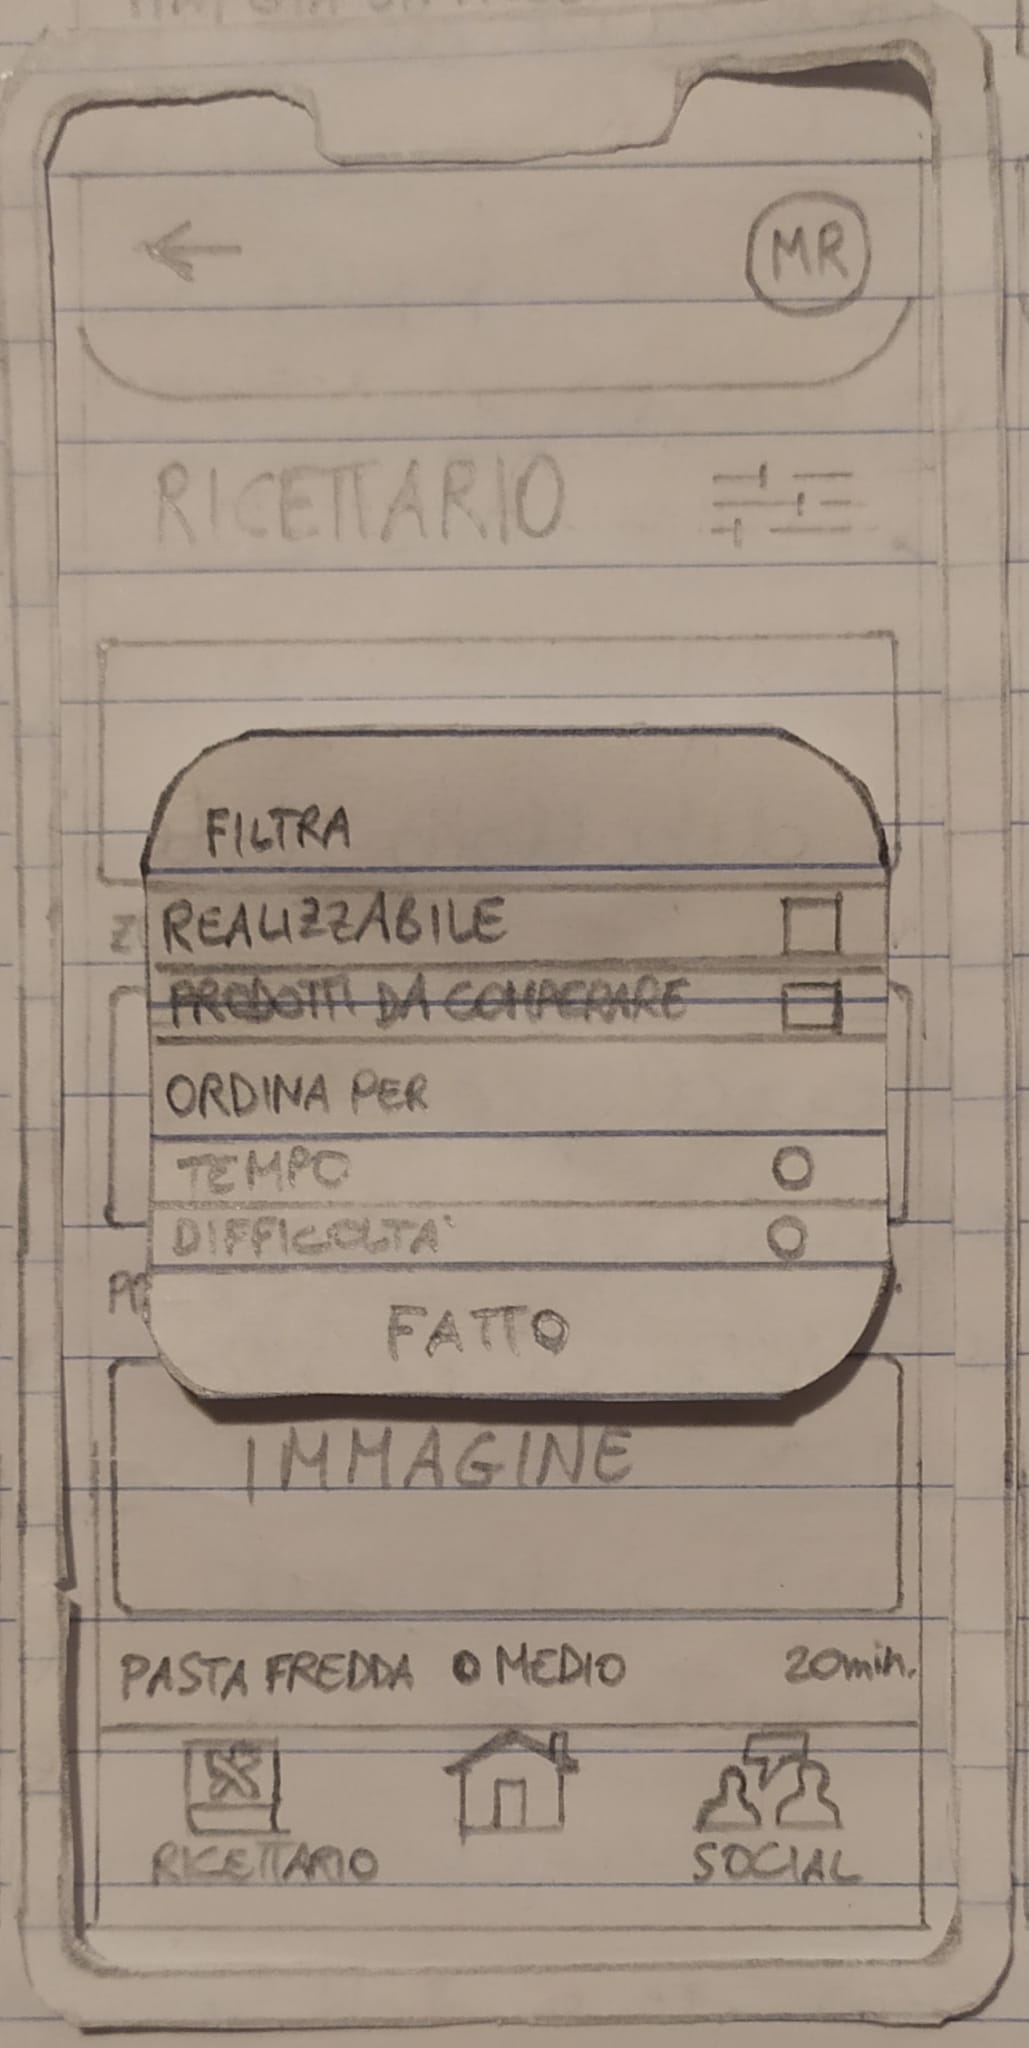 MR
RICETTARIO
FILTRA
REALIZZABILE
PRODOTTI DA COMPERARE
ORDINA PER
TEMPO
DIFFICOLTA'
FATTO
IMMAGINE
PASTA FREDDA O MEDIO 20min.
RICETTARIO
SOCIAL